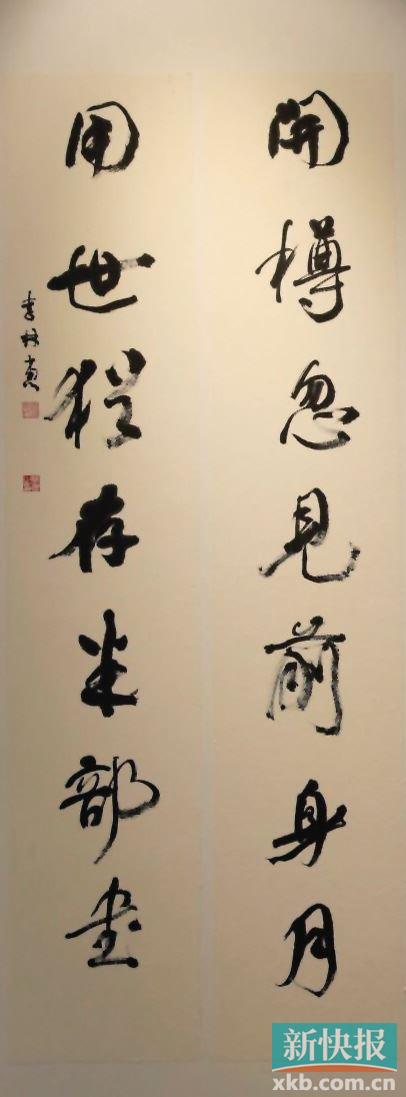 開樽忽見前身月
用世猶存半部書
李林
新快报
xkb.com.cn